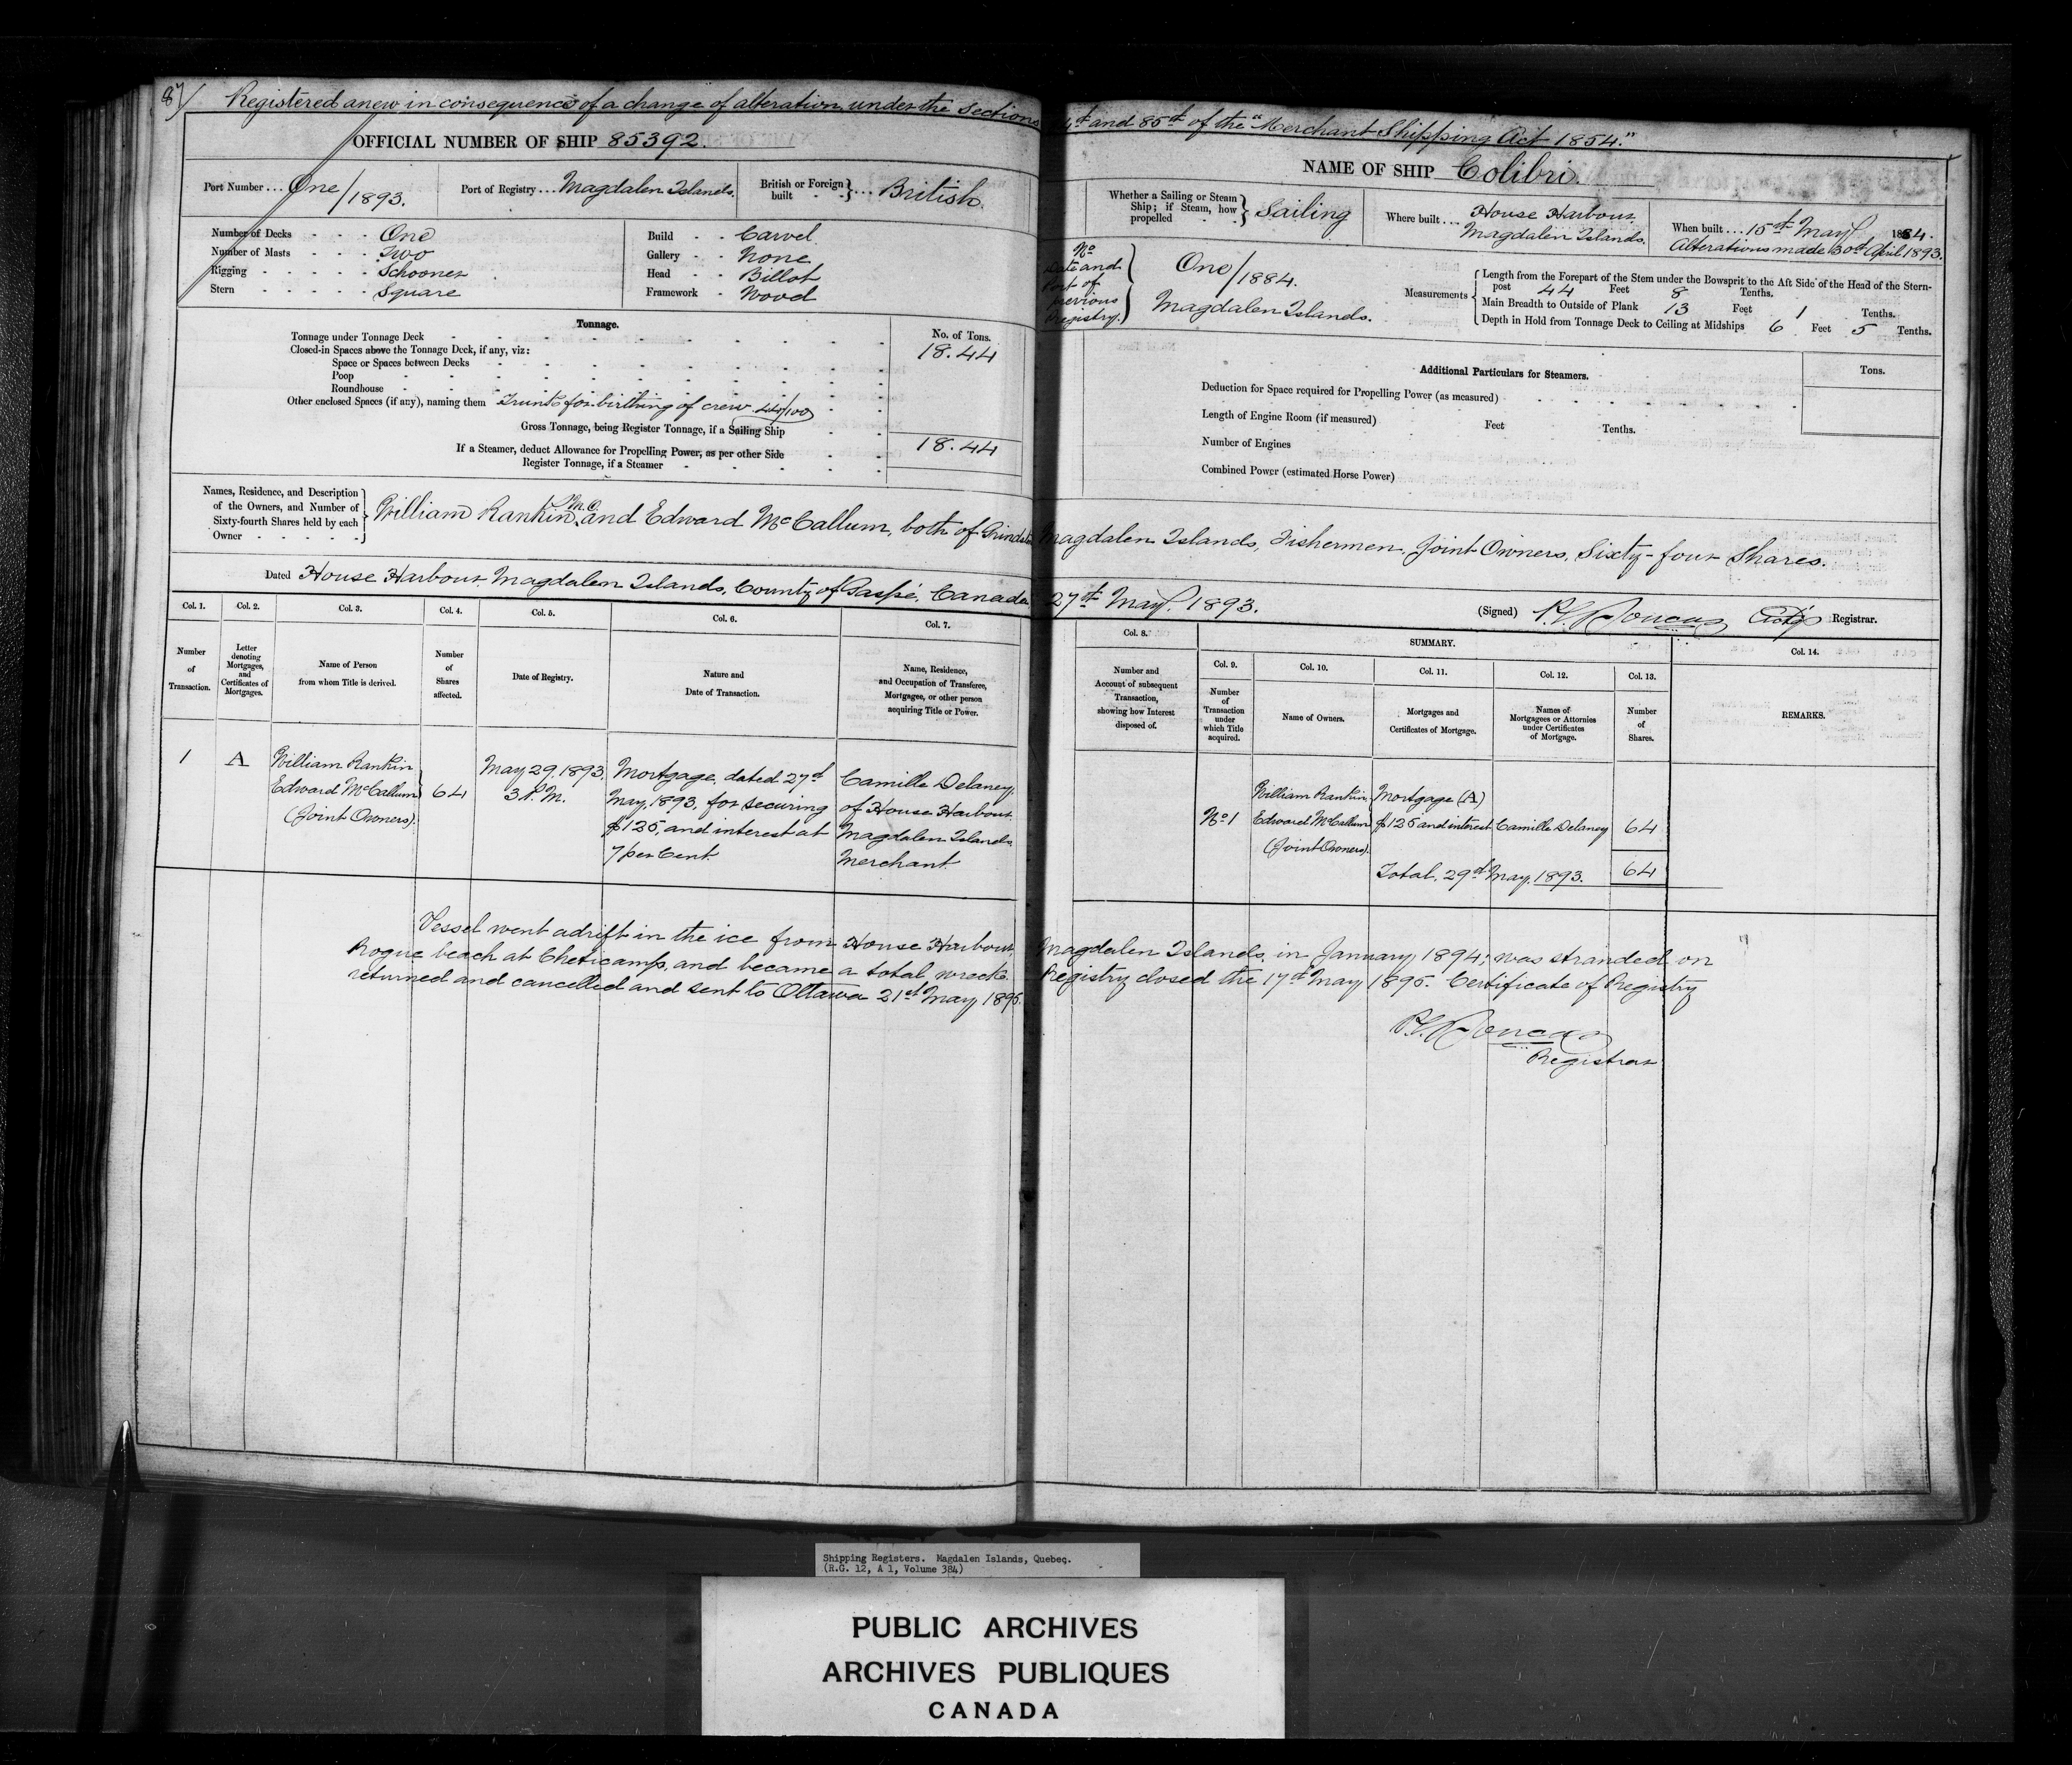 87/ Registered anew in consequence of a change of alteration, under the Sections 4th and 85th of the "Merchant Shipping Act 1854."
OFFICIAL NUMBER OF SHIP 85392.
NAME OF SHIP Colibri.
Port Number ... One/1893.
Port of Registry ... Magdalen Islands.
British or Foreign built } ... British.
Whether a Sailing or Steam Ship; if Steam, how propelled } Sailing
Where built ... House Harbour Magdalen Islands.
When built ... 15th May 1884.
Alterations made 30th April 1893.
Number of Decks One
Number of Masts Two
Rigging Schooner
Stern Square
Build Carvel
Gallery None
Head Billot
Framework Wood
No Date and Port of previous Registry. } One/1884. Magdalen Islands.
Measurements
Length from the Forepart of the Stem under the Bowsprit to the Aft Side of the Head of the Stern-
post 44 Feet 8 Tenths.
Main Breadth to Outside of Plank 13 Feet 1 Tenths.
Depth in Hold from Tonnage Deck to Ceiling at Midships 6 Feet 5 Tenths.
Tonnage.
No. of Tons.
Tonnage under Tonnage Deck 18.44
Closed-in Spaces above the Tonnage Deck, if any, viz:
Space or Spaces between Decks
Poop
Roundhouse
Other enclosed Spaces (if any), naming them Trunk for birthing of crew 44/100
Gross Tonnage, being Register Tonnage, if a Sailing Ship 18.44
If a Steamer, deduct Allowance for Propelling Power, as per other Side
Register Tonnage, if a Steamer
Additional Particulars for Steamers.
Tons.
Deduction for Space required for Propelling Power (as measured)
Length of Engine Room (if measured) Feet Tenths.
Number of Engines
Combined Power (estimated Horse Power)
Names, Residence, and Description
of the Owners, and Number of
Sixty-fourth Shares held by each
Owner
William Rankin, and Edward McCallum, both of Magdalen Islands, Fishermen, Joint Owners, Sixty-four Shares.
Dated House Harbour Magdalen Islands, County of Gaspé, Canada 27th May. 1893.
(Signed) Registrar.
Col. 1. Col. 2. Col. 3. Col. 4. Col. 5. Col. 6. Col. 7. Col. 8.
SUMMARY.
Col. 9. Col. 10. Col. 11. Col. 12. Col. 13. Col. 14.
Number of Transaction.
Letter denoting Mortgages, and Certificates of Mortgages.
Name of Person from whom Title is derived.
Number of Shares affected.
Date of Registry.
Nature and Date of Transaction.
Name, Residence, and Occupation of Transferee, Mortgagee, or other person acquiring Title or Power.
Number and Account of subsequent Transaction, showing how Interest disposed of.
Number of Transaction under which Title acquired.
Name of Owners.
Mortgages and Certificates of Mortgage.
Names of Mortgagees or Attornies under Certificates of Mortgage.
Number of Shares.
REMARKS.
1
A
William Rankin
Edward McCallum
(Joint Owners).
64
May 29, 1893,
3 P.M.
Mortgage, dated 27th
May, 1893, for securing
$125, and interest at
7 per Cent.
Camille Delaney,
of House Harbour
Magdalen Islands
Merchant
No 1
William Rankin
Edward McCallum
(Joint Owners).
Mortgage (A)
$125 and interest
Camille Delaney
64
Total, 29th May, 1893. 64
Vessel went adrift in the ice from House Harbour, Magdalen Islands, in January 1894; was stranded on
Rogue beach at Cheticamp, and became a total wreck. Registry closed the 17th May 1895. Certificate of Registry
returned and cancelled and sent to Ottawa 21st May 1895.
Registrar
Shipping Registers. Magdalen Islands, Quebec.
(R.G. 12, A 1, Volume 384)
PUBLIC ARCHIVES
ARCHIVES PUBLIQUES
CANADA